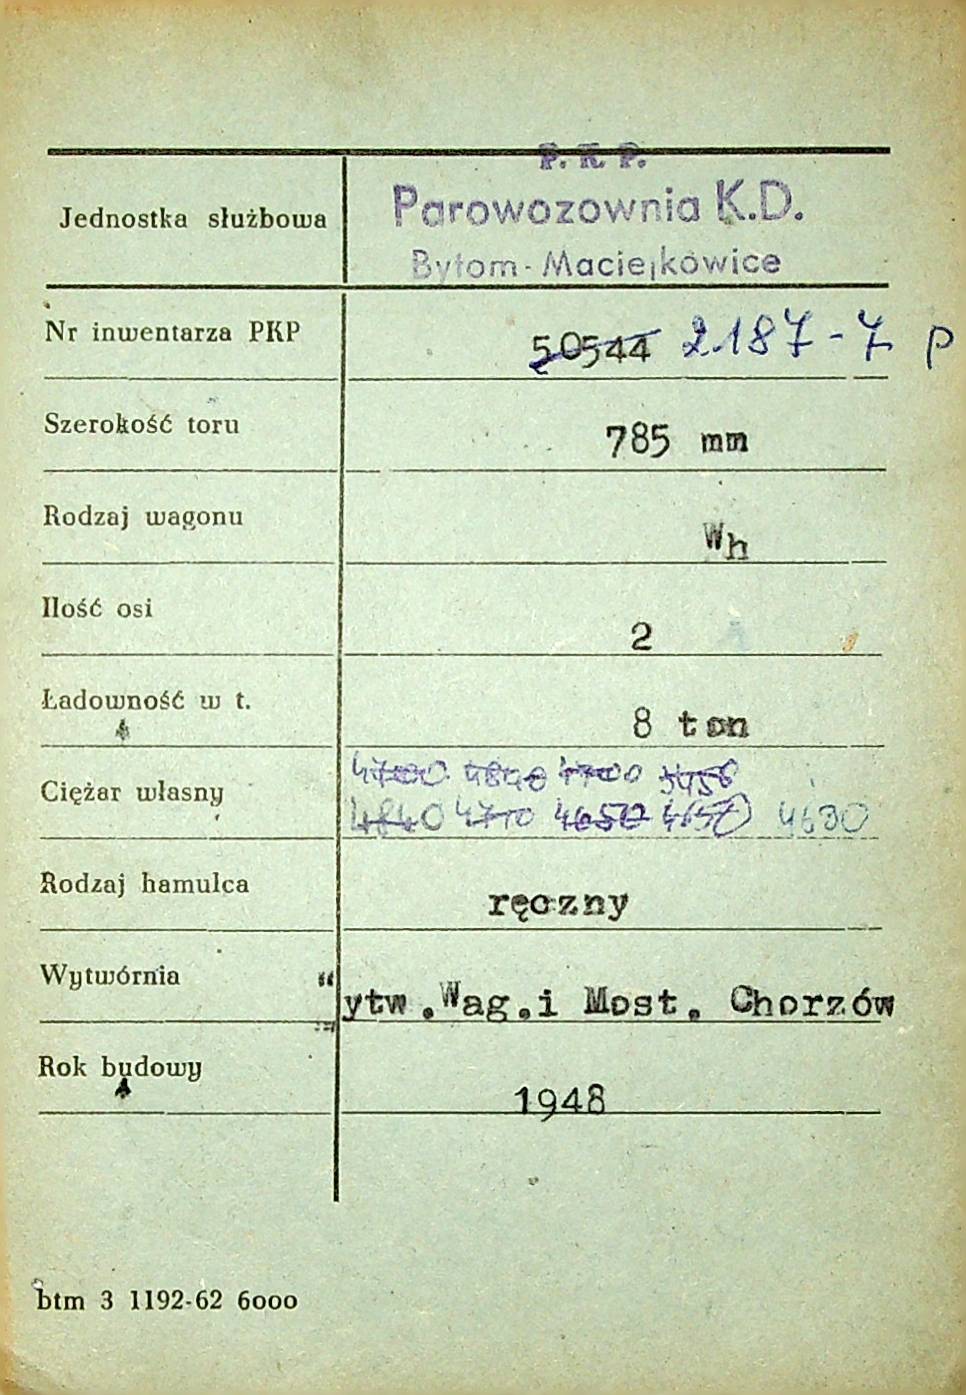 P. K. P.
Jednostka służbowa Parowozownia K.D.
Bytom - Maciejkowice
Nr inwentarza PKP 50544 2187-7 p
Szerokość toru 785 mm
Rodzaj wagonu Wh
Ilość osi 2
Ładowność w t. 8 ton
4700 4840 4700 5450
Ciężar własny 4840 4710 4650 4650 4630
Rodzaj hamulca ręczny
Wytwórnia "ytw.Wag.i Most. Chorzów
Rok budowy 1948
btm 3 1192-62 6000